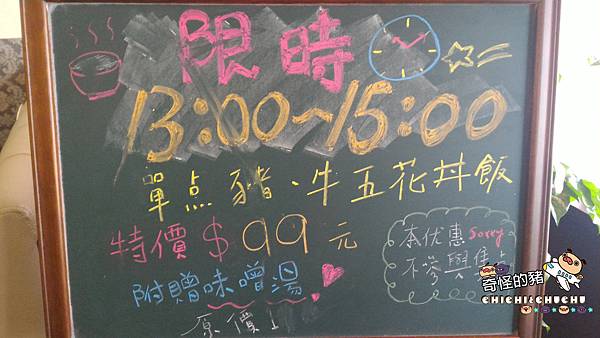 限時
13:00~15:00
單点豬、牛五花丼飯
特價$99元
附贈味噌湯
原價1
本优惠Sorry
不參與集
奇怪的豬
CHICHI&CHUCHU